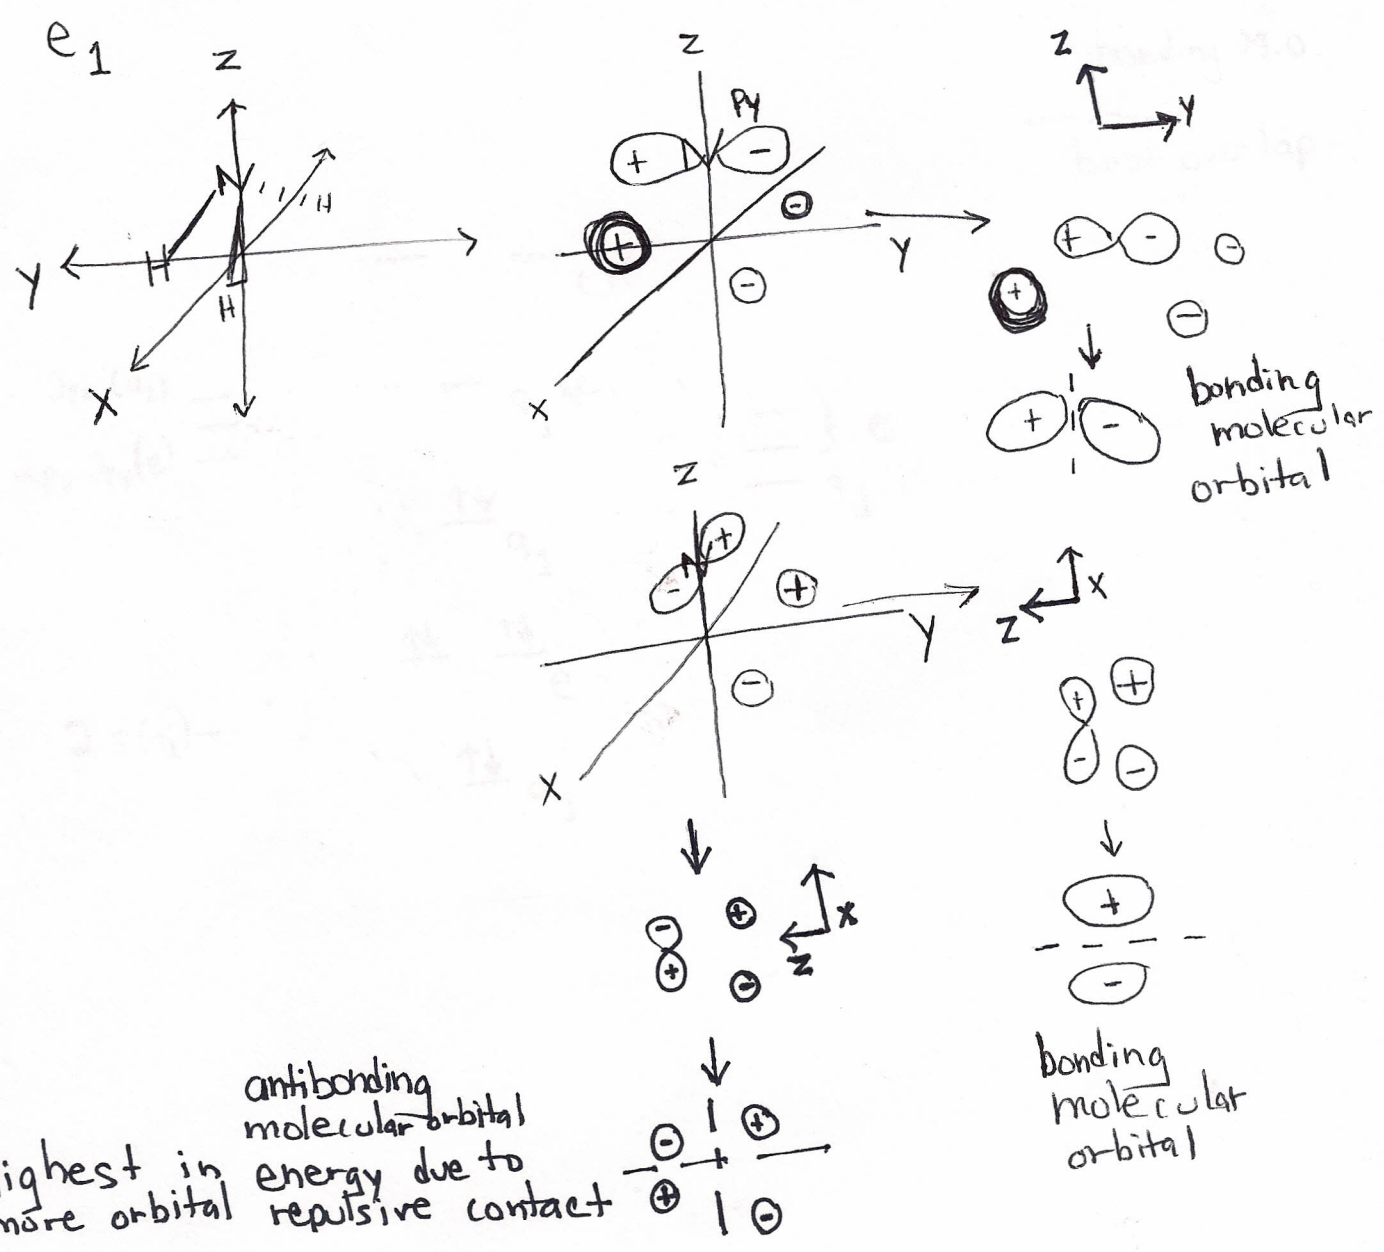 e1
Z
N
H
H
Y
H
X
Z
Py
+ -
+
-
-
Y
X
Z
Y
+ -
-
+
-
+ -
bonding
molecular
orbital
Z
N
+
-
+
-
Y
X
X
Z
+ +
- -
+
-
bonding
molecular
orbital
- +
+ -
X
Z
- +
+ -
antibonding
molecular orbital
ighest in energy due to
more orbital repulsive contact